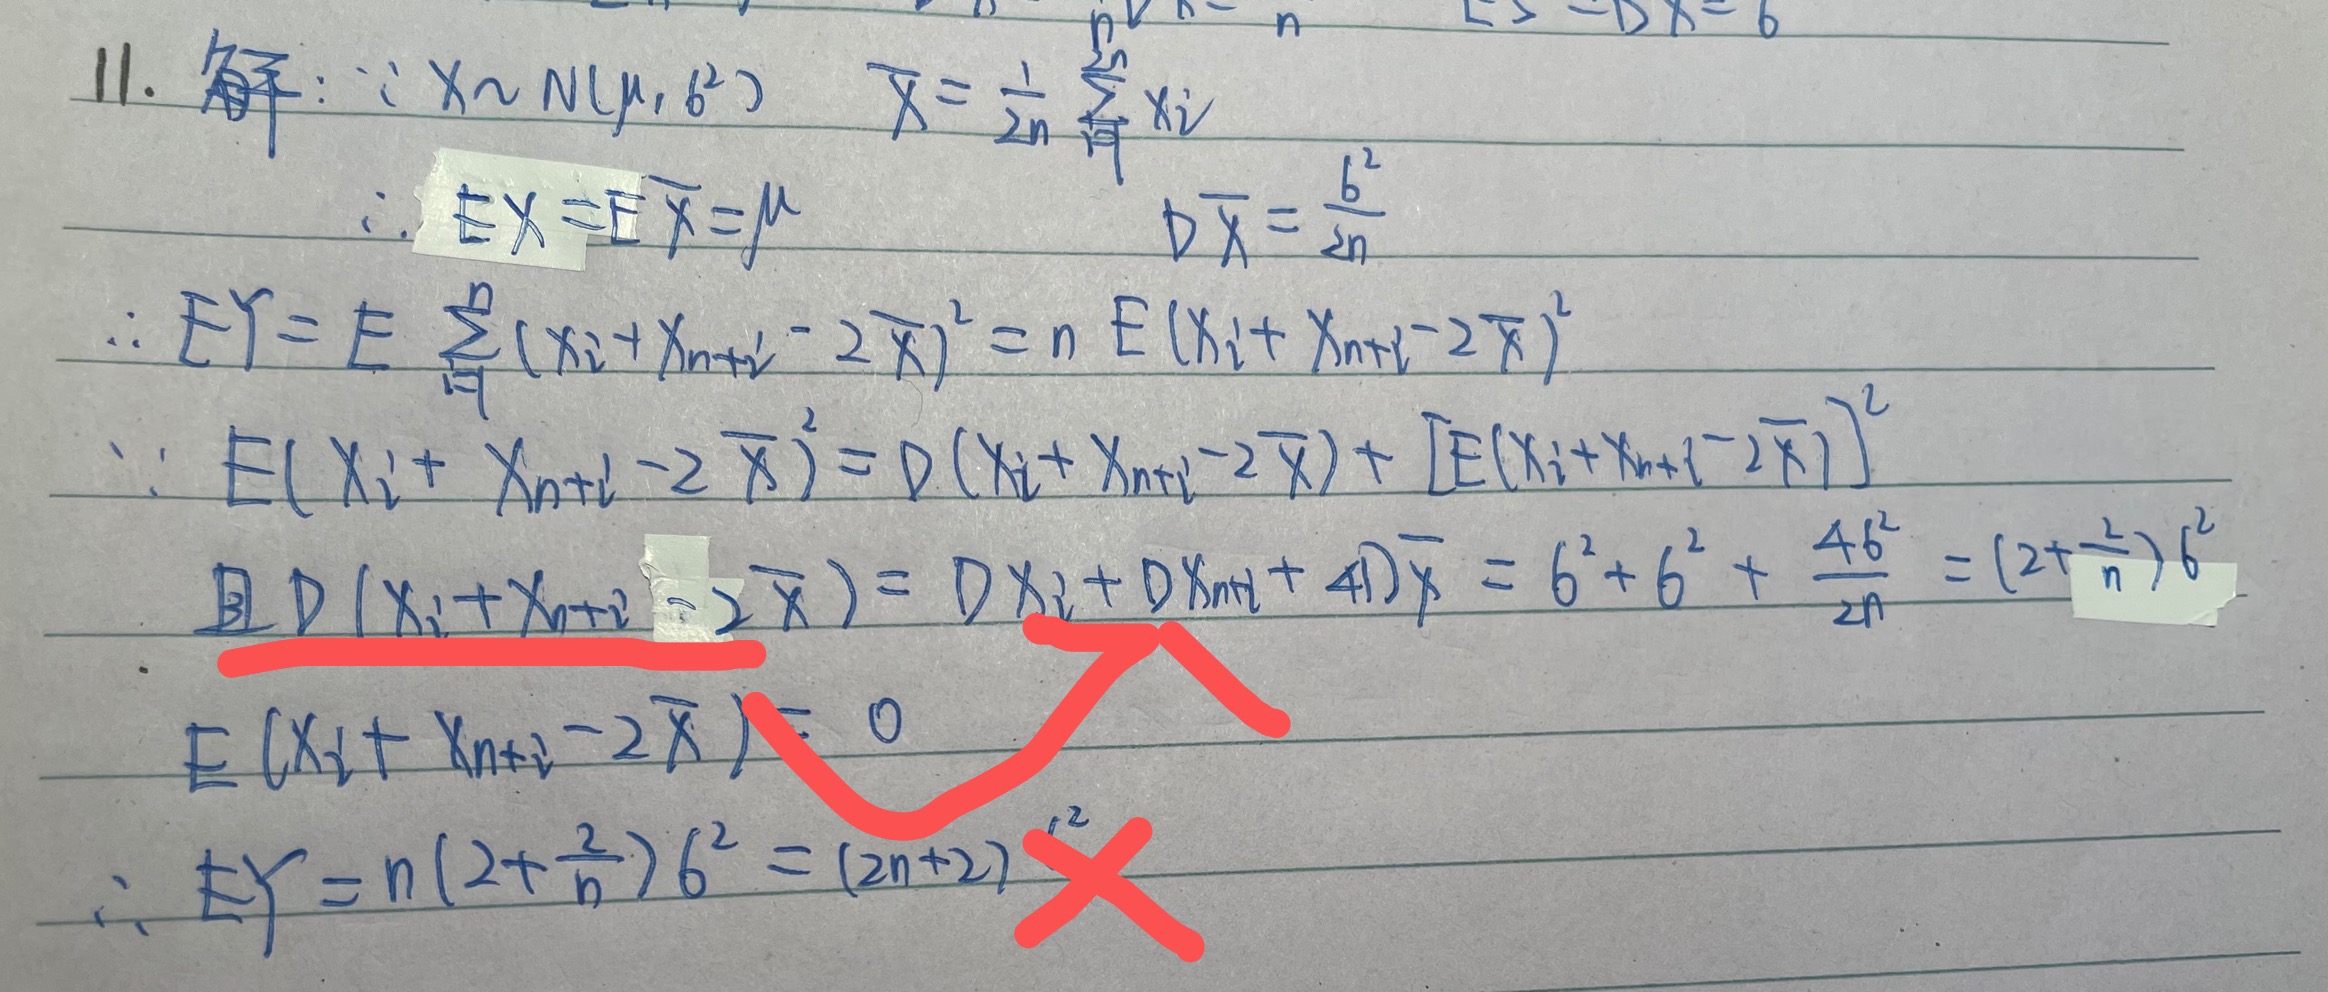 n   ES²=DX=6
11. 解: ∵ X~N(μ, 6²)   X̄ = 1/2n ∑_{i=1}^{2n} Xi
∴ EX = EX̄ = μ   DX̄ = 6²/2n
∴ EY = E ∑_{i=1}^{n} (Xi + Xn+i - 2X̄)² = n E(Xi + Xn+i - 2X̄)²
∵ E(Xi + Xn+i - 2X̄)² = D(Xi + Xn+i - 2X̄) + [E(Xi + Xn+i - 2X̄)]²
且 D(Xi + Xn+i - 2X̄) = DXi + DXn+i + 4DX̄ = 6² + 6² + 46²/2n = (2 + 2/n)6²
E(Xi + Xn+i - 2X̄) = 0
∴ EY = n(2 + 2/n)6² = (2n+2)